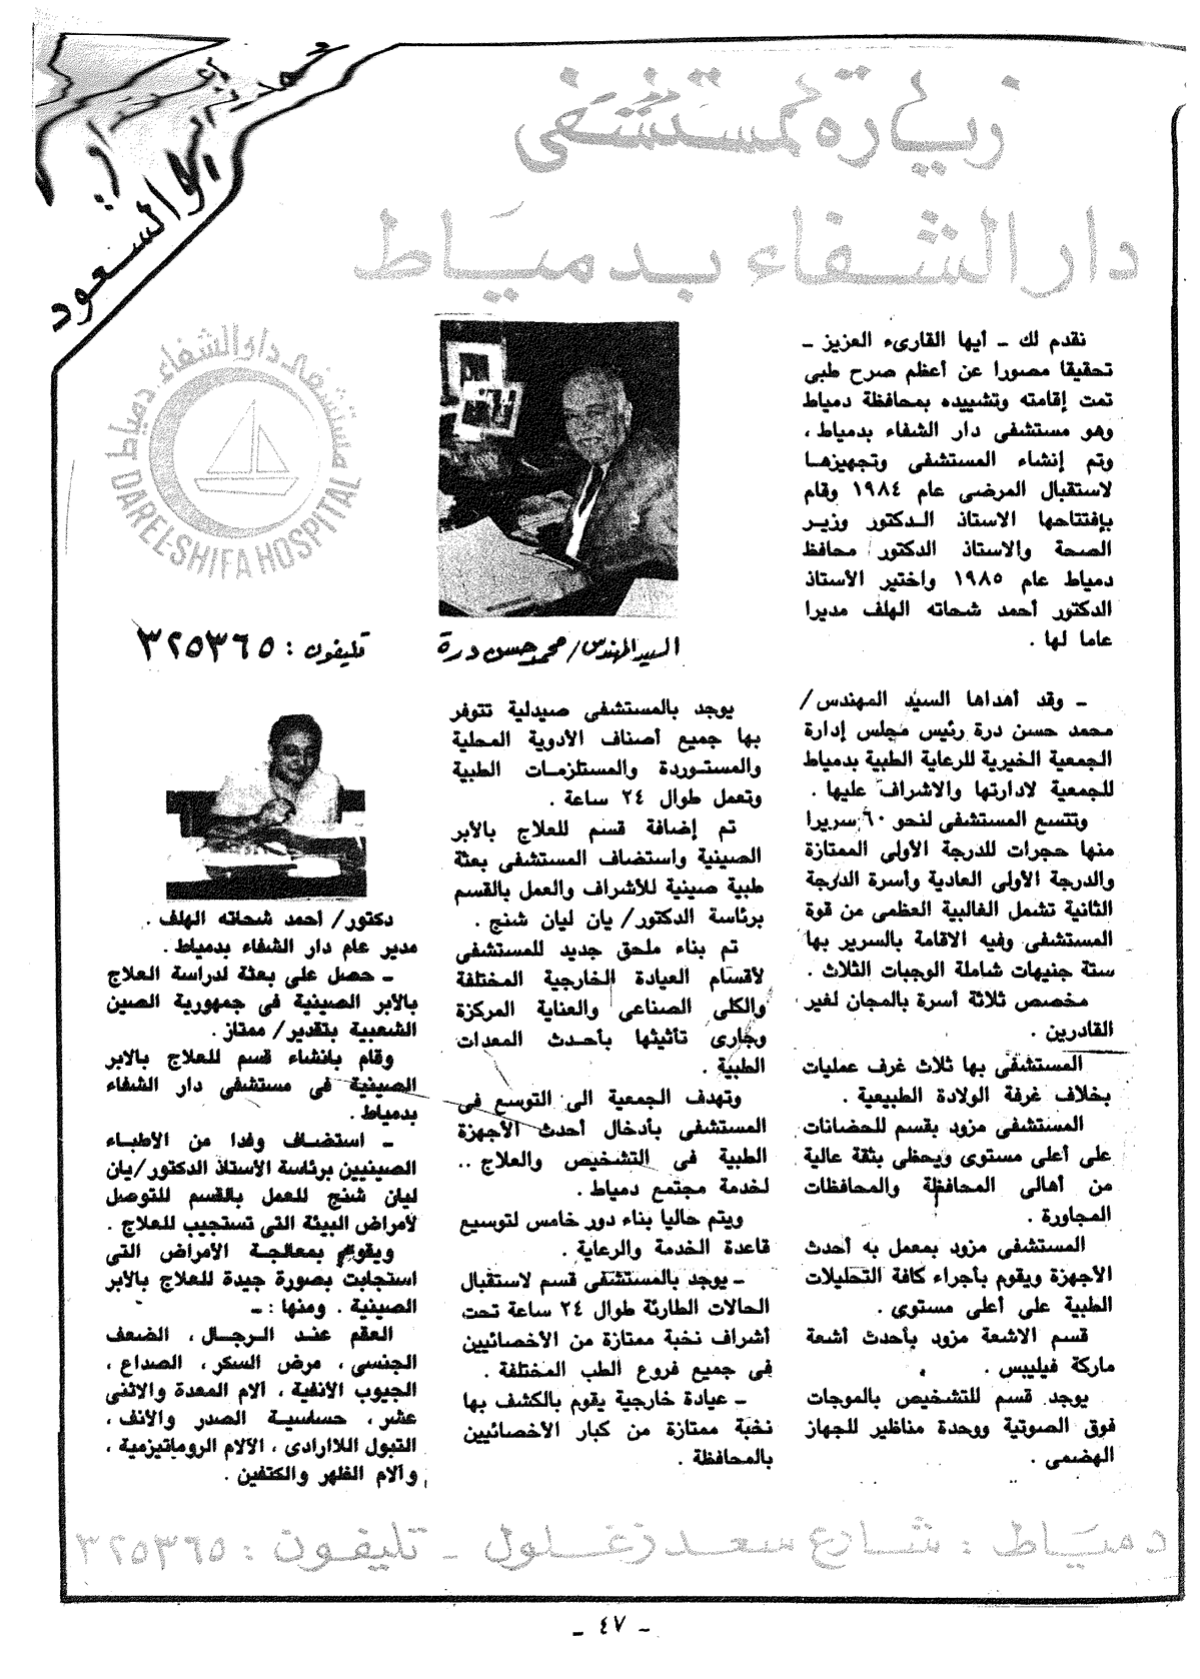 إعداد :
أبو السعود
زيارة لمستشفى
دار الشفاء بدمياط
مستشفى دار الشفاء دمياط
DAR EL-SHIFA HOSPITAL
تليفون : ٣٢٥٣٦٥
السيد المهندس/ محمد حسن درة
نقدم لك ـ أيها القارىء العزيز ـ
تحقيقا مصورا عن أعظم صرح طبى
تمت إقامته وتشييده بمحافظة دمياط
وهو مستشفى دار الشفاء بدمياط ،
وتم إنشاء المستشفى وتجهيزها
لاستقبال المرضى عام ١٩٨٤ وقام
بإفتتاحها الاستاذ الدكتور وزير
الصحة والاستاذ الدكتور محافظ
دمياط عام ١٩٨٥ واختير الأستاذ
الدكتور أحمد شحاته الهلف مديرا
عاما لها .
ـ وقد أهداها السيد المهندس/
محمد حسن درة رئيس مجلس إدارة
الجمعية الخيرية للرعاية الطبية بدمياط
للجمعية لادارتها والاشراف عليها .
وتتسع المستشفى لنحو ٦٠ سريرا
منها حجرات للدرجة الأولى الممتازة
والدرجة الأولى العادية وأسرة الدرجة
الثانية تشمل الغالبية العظمى من قوة
المستشفى وفيه الاقامة بالسرير بها
ستة جنيهات شاملة الوجبات الثلاث .
مخصص ثلاثة أسرة بالمجان لغير
القادرين .
المستشفى بها ثلاث غرف عمليات
بخلاف غرفة الولادة الطبيعية .
المستشفى مزود بقسم للحضانات
على أعلى مستوى ويحظى بثقة عالية
من أهالى المحافظة والمحافظات
المجاورة .
المستشفى مزود بمعمل به أحدث
الأجهزة ويقوم بأجراء كافة التحليلات
الطبية على أعلى مستوى .
قسم الاشعة مزود بأحدث أشعة
ماركة فيليبس .
يوجد قسم للتشخيص بالموجات
فوق الصوتية ووحدة مناظير للجهاز
الهضمى .
يوجد بالمستشفى صيدلية تتوفر
بها جميع أصناف الأدوية المحلية
والمستوردة والمستلزمات الطبية
وتعمل طوال ٢٤ ساعة .
تم إضافة قسم للعلاج بالأبر
الصينية واستضاف المستشفى بعثة
طبية صينية للأشراف والعمل بالقسم
برئاسة الدكتور/ يان ليان شنج .
تم بناء ملحق جديد للمستشفى
لأقسام العيادة الخارجية المختلفة
والكلى الصناعى والعناية المركزة
وجارى تأثيثها بأحدث المعدات
الطبية .
وتهدف الجمعية الى التوسع فى
المستشفى بأدخال أحدث الأجهزة
الطبية فى التشخيص والعلاج ..
لخدمة مجتمع دمياط .
ويتم حاليا بناء دور خامس لتوسيع
قاعدة الخدمة والرعاية .
ـ يوجد بالمستشفى قسم لاستقبال
الحالات الطارئة طوال ٢٤ ساعة تحت
أشراف نخبة ممتازة من الأخصائيين
فى جميع فروع الطب المختلفة .
ـ عيادة خارجية يقوم بالكشف بها
نخبة ممتازة من كبار الأخصائيين
بالمحافظة .
دكتور/ أحمد شحاته الهلف .
مدير عام دار الشفاء بدمياط .
ـ حصل على بعثة لدراسة العلاج
بالأبر الصينية فى جمهورية الصين
الشعبية بتقدير/ ممتاز .
وقام بانشاء قسم للعلاج بالابر
الصينية فى مستشفى دار الشفاء
بدمياط .
ـ استضاف وفدا من الأطباء
الصينيين برئاسة الأستاذ الدكتور/يان
ليان شنج للعمل بالقسم للتوصل
لأمراض البيئة التى تستجيب للعلاج .
ويقوم بمعالجة الأمراض التى
استجابت بصورة جيدة للعلاج بالأبر
الصينية . ومنها :ـ
العقم عند الرجال ، الضعف
الجنسى ، مرض السكر ، الصداع ،
الجيوب الأنفية ، آلام المعدة والاثنى
عشر ، حساسية الصدر والأنف ،
التبول اللاارادى ، الآلام الروماتيزمية ،
وآلام الظهر والكتفين .
دمياط : شارع سعد زغلول ـ تليفون : ٣٢٥٣٦٥
ـ ٤٧ ـ